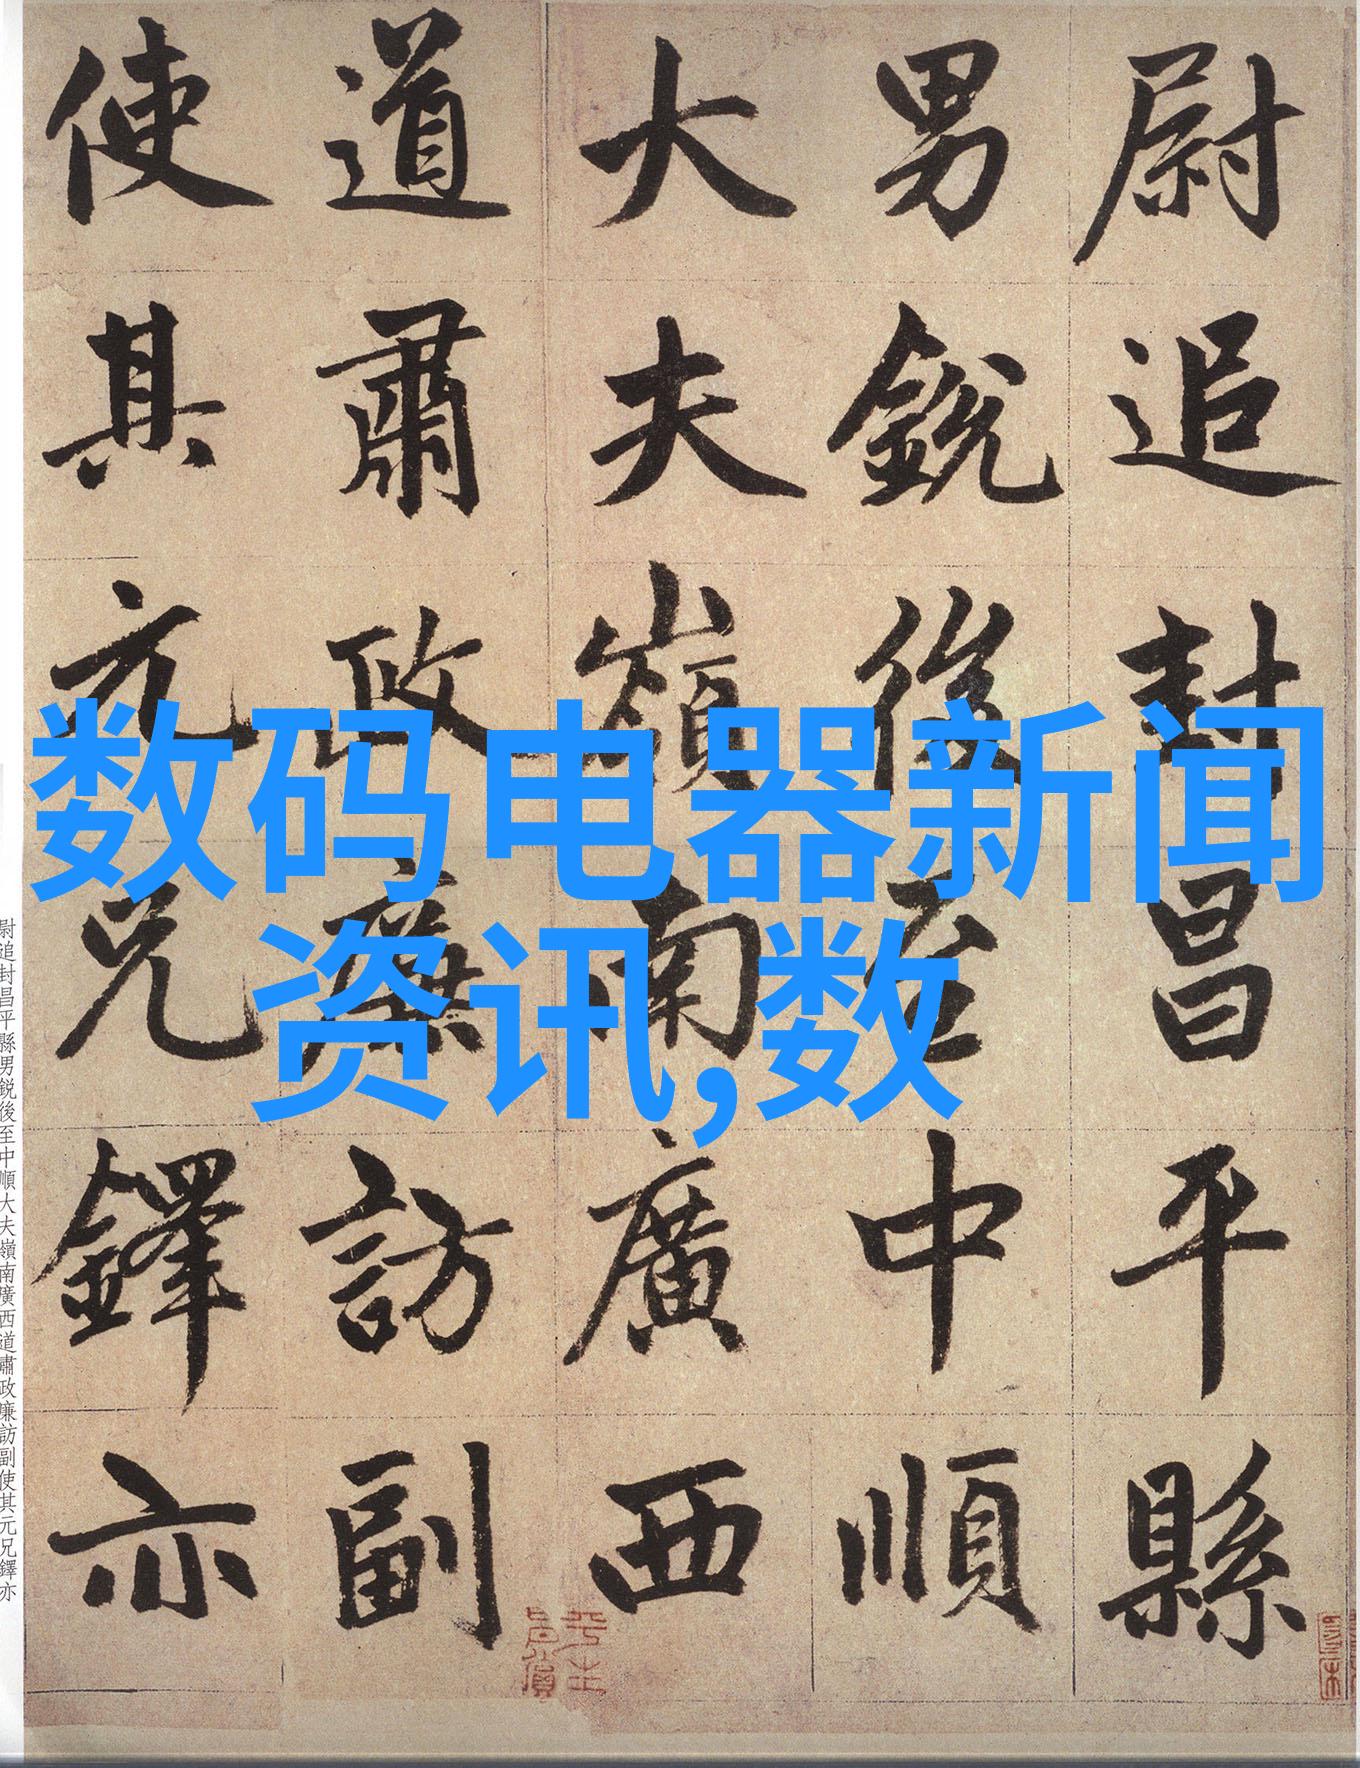 尉追封昌平縣
男銳後至中順
大夫嶺南廣西
道肅政廉訪副
使其元兄鐸亦
数码电器新闻
资讯,数
尉追封昌平縣男銳後至中順大夫嶺南廣西道肅政廉訪副使其元兄鐸亦